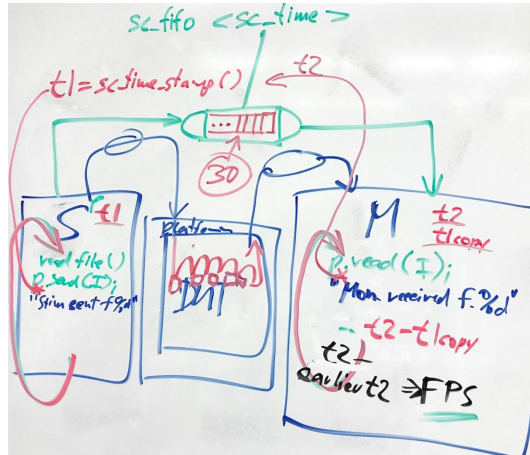 sc_fifo <sc_time>
t1 = sc_time_stamp()
t2
30
S t1
read file()
p.send(I);
"Stim sent f%d"
platform
DUT
M t2
t1copy
p.read(I);
"Mon received f.%d"
- t2-t1copy
t2 -
earlier t2 ⇒ FPS